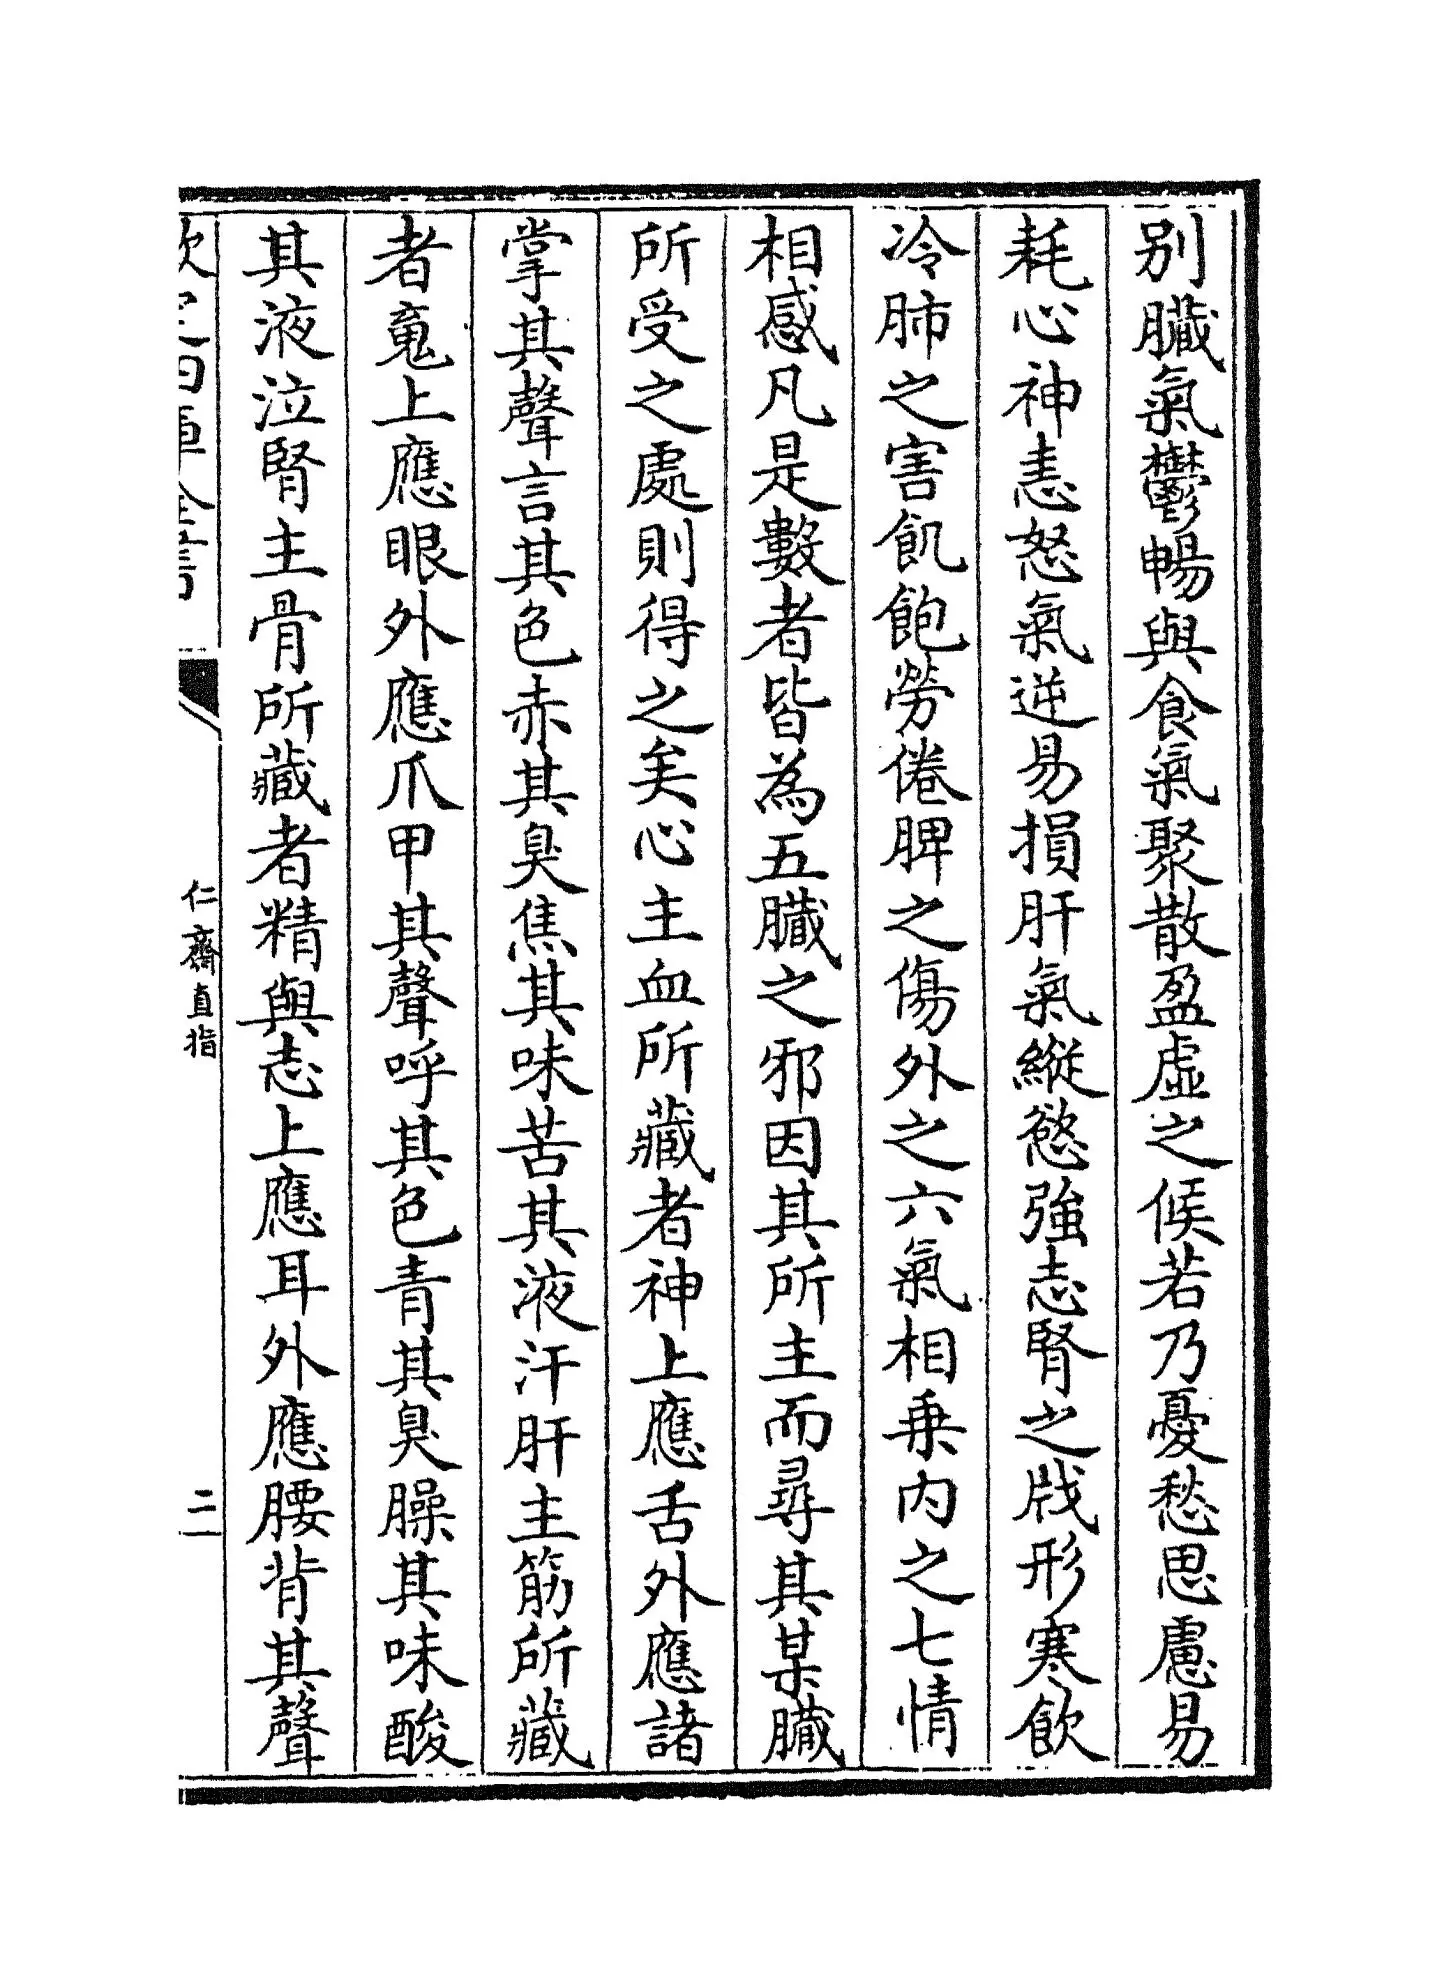 别臓氣鬱暢與食氣聚散盈虚之候若乃憂愁思慮易
耗心神恚怒氣逆易損肝氣縱慾強志腎之戕形寒飲
冷肺之害飢飽勞倦脾之傷外之六氣相乗内之七情
相感凡是數者皆為五臓之邪因其所主而尋其某臓
所受之處則得之矣心主血所藏者神上應舌外應諸
掌其聲言其色赤其臭焦其味苦其液汗肝主筋所藏
者䰟上應眼外應爪甲其聲呼其色青其臭臊其味酸
其液泣腎主骨所藏者精與志上應耳外應腰背其聲
欽定四庫全書
仁齋直指
二